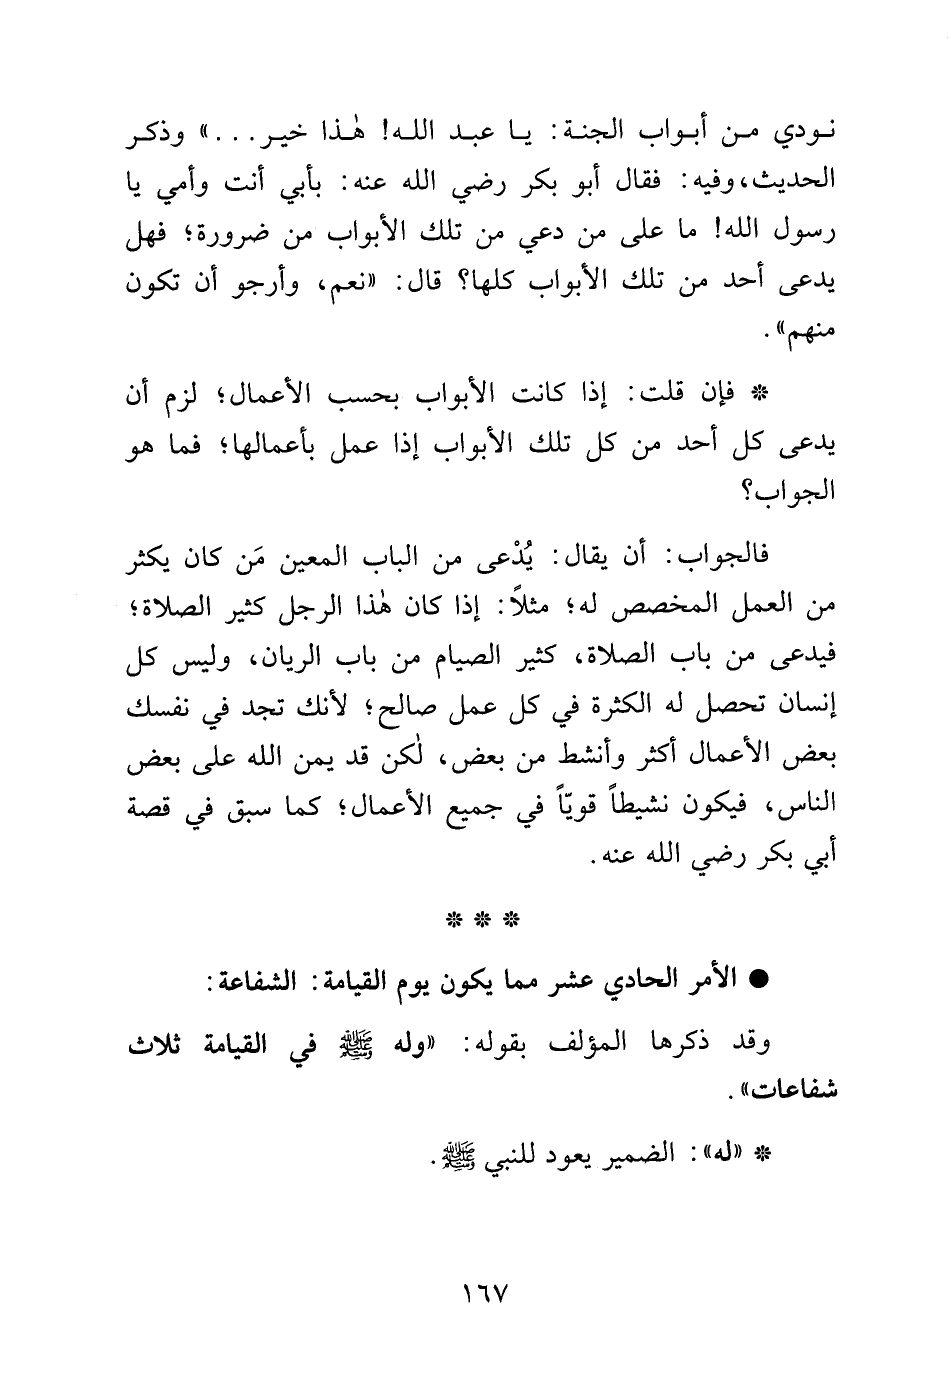 نودي من أبواب الجنة: يا عبد الله! هٰذا خير...» وذكر
الحديث، وفيه: فقال أبو بكر رضي الله عنه: بأبي أنت وأمي يا
رسول الله! ما على من دعي من تلك الأبواب من ضرورة؛ فهل
يدعى أحد من تلك الأبواب كلها؟ قال: «نعم، وأرجو أن تكون
منهم».
* فإن قلت: إذا كانت الأبواب بحسب الأعمال؛ لزم أن
يدعى كل أحد من كل تلك الأبواب إذا عمل بأعمالها؛ فما هو
الجواب؟
فالجواب: أن يقال: يُدْعى من الباب المعين مَن كان يكثر
من العمل المخصص له؛ مثلاً: إذا كان هٰذا الرجل كثير الصلاة؛
فيدعى من باب الصلاة، كثير الصيام من باب الريان، وليس كل
إنسان تحصل له الكثرة في كل عمل صالح؛ لأنك تجد في نفسك
بعض الأعمال أكثر وأنشط من بعض، لٰكن قد يمن الله على بعض
الناس، فيكون نشيطاً قويّاً في جميع الأعمال؛ كما سبق في قصة
أبي بكر رضي الله عنه.
* * *
● الأمر الحادي عشر مما يكون يوم القيامة: الشفاعة:
وقد ذكرها المؤلف بقوله: «وله ﷺ في القيامة ثلاث
شفاعات».
* «له»: الضمير يعود للنبي ﷺ.
١٦٧